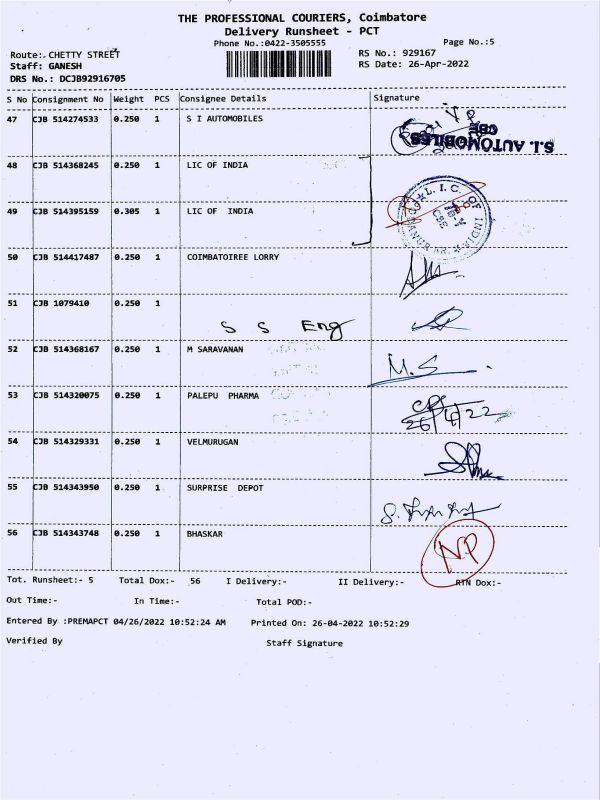 THE PROFESSIONAL COURIERS, Coimbatore
Delivery Runsheet - PCT
Phone No.:0422-3505555 Page No.:5
Route:. CHETTY STREET RS No.: 929167
Staff: GANESH RS Date: 26-Apr-2022
DRS No.: DCJB92916705
S No Consignment No Weight PCS Consignee Details Signature
47 CJB 514274533 0.250 1 S I AUTOMOBILES
S.I. AUTOMOBILES
CBE
48 CJB 514368245 0.250 1 LIC OF INDIA
L. I. C. OF
CBE
49 CJB 514395159 0.305 1 LIC OF INDIA
50 CJB 514417487 0.250 1 COIMBATOIREE LORRY
51 CJB 1079410 0.250 1
S S Eng
52 CJB 514368167 0.250 1 M SARAVANAN M.S
53 CJB 514320075 0.250 1 PALEPU PHARMA
26/4/22
54 CJB 514329331 0.250 1 VELMURUGAN
55 CJB 514343950 0.250 1 SURPRISE DEPOT
56 CJB 514343748 0.250 1 BHASKAR NP
Tot. Runsheet:- 5 Total Dox:- 56 I Delivery:- II Delivery:- RTN Dox:-
Out Time:- In Time:- Total POD:-
Entered By :PREMAPCT 04/26/2022 10:52:24 AM Printed On: 26-04-2022 10:52:29
Verified By Staff Signature